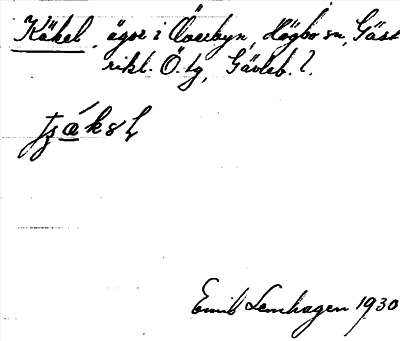 Käkel, ägor i Överbyn, Högbo sn, Gäst
rikl. Ö. tg, Gävleb. l.
Emil Lenhagen 1930